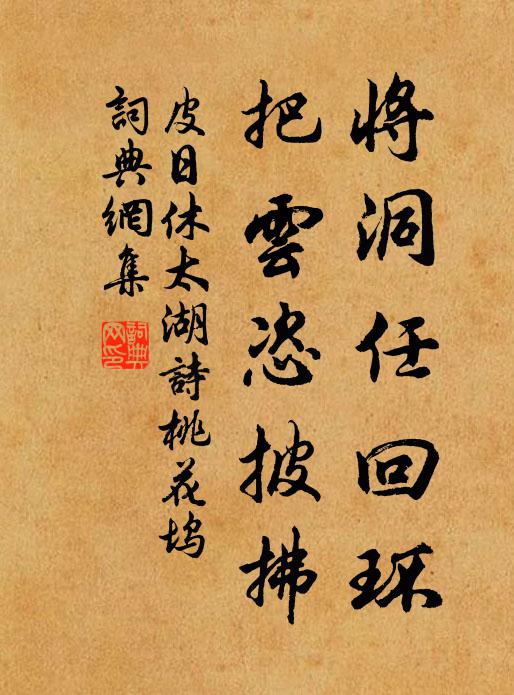 將洞任回环
把雲恣披拂
皮日休太湖詩桃花塢
詞典網集
詞典
网印